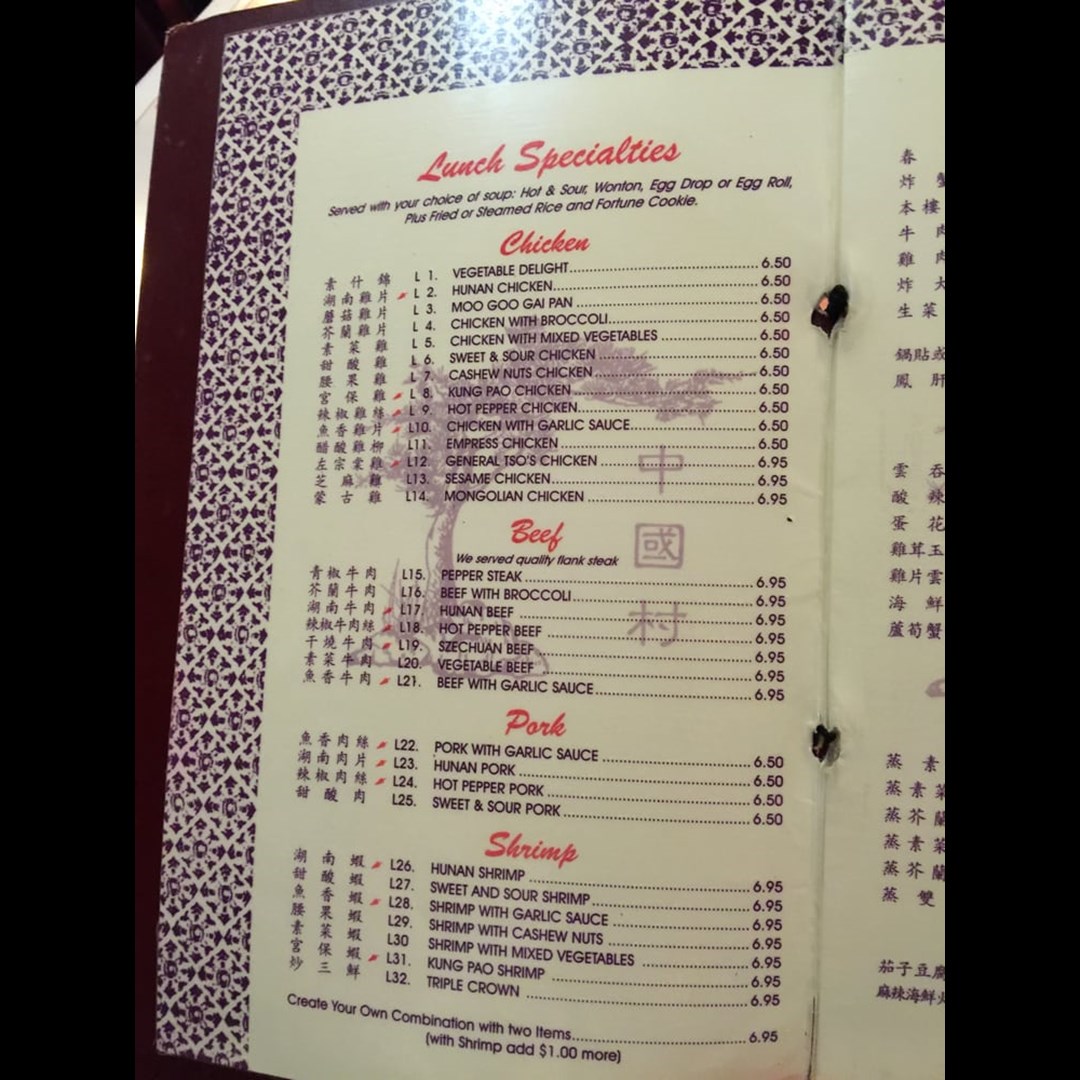 Lunch Specialties
Served with your choice of soup: Hot & Sour, Wonton, Egg Drop or Egg Roll,
Plus Fried or Steamed Rice and Fortune Cookie.
Chicken
素什錦 L 1. VEGETABLE DELIGHT 6.50
湖南雞片 L 2. HUNAN CHICKEN 6.50
蘑菇雞片 L 3. MOO GOO GAI PAN 6.50
芥蘭雞片 L 4. CHICKEN WITH BROCCOLI 6.50
素菜雞 L 5. CHICKEN WITH MIXED VEGETABLES 6.50
甜酸雞 L 6. SWEET & SOUR CHICKEN 6.50
腰果雞 L 7. CASHEW NUTS CHICKEN 6.50
宮保雞 L 8. KUNG PAO CHICKEN 6.50
辣椒雞絲 L 9. HOT PEPPER CHICKEN 6.50
魚香雞片 L10. CHICKEN WITH GARLIC SAUCE 6.50
醋酸雞柳 L11. EMPRESS CHICKEN 6.50
左宗棠雞 L12. GENERAL TSO'S CHICKEN 6.95
芝麻雞 L13. SESAME CHICKEN 6.95
蒙古雞 L14. MONGOLIAN CHICKEN 6.95
中國村
Beef
We served quality flank steak
青椒牛肉 L15. PEPPER STEAK 6.95
芥蘭牛肉 L16. BEEF WITH BROCCOLI 6.95
湖南牛肉 L17. HUNAN BEEF 6.95
辣椒牛肉絲 L18. HOT PEPPER BEEF 6.95
干燒牛肉 L19. SZECHUAN BEEF 6.95
素菜牛肉 L20. VEGETABLE BEEF 6.95
魚香牛肉 L21. BEEF WITH GARLIC SAUCE 6.95
Pork
魚香肉絲 L22. PORK WITH GARLIC SAUCE 6.50
湖南肉片 L23. HUNAN PORK 6.50
辣椒肉絲 L24. HOT PEPPER PORK 6.50
甜酸肉 L25. SWEET & SOUR PORK 6.50
Shrimp
湖南蝦 L26. HUNAN SHRIMP 6.95
甜酸蝦 L27. SWEET AND SOUR SHRIMP 6.95
魚香蝦 L28. SHRIMP WITH GARLIC SAUCE 6.95
腰果蝦 L29. SHRIMP WITH CASHEW NUTS 6.95
素菜蝦 L30 SHRIMP WITH MIXED VEGETABLES 6.95
宮保蝦 L31. KUNG PAO SHRIMP 6.95
炒三鮮 L32. TRIPLE CROWN 6.95
Create Your Own Combination with two Items 6.95
(with Shrimp add $1.00 more)
春
炸蟹
本樓
牛肉
雞肉
炸大
生菜
鍋貼或
鳳肝
雲吞
酸辣
蛋花
雞茸玉
雞片雲
海鮮
蘆筍蟹
蒸素
蒸素菜
蒸芥蘭
蒸素菜
蒸芥蘭
蒸雙
茄子豆腐
麻辣海鮮